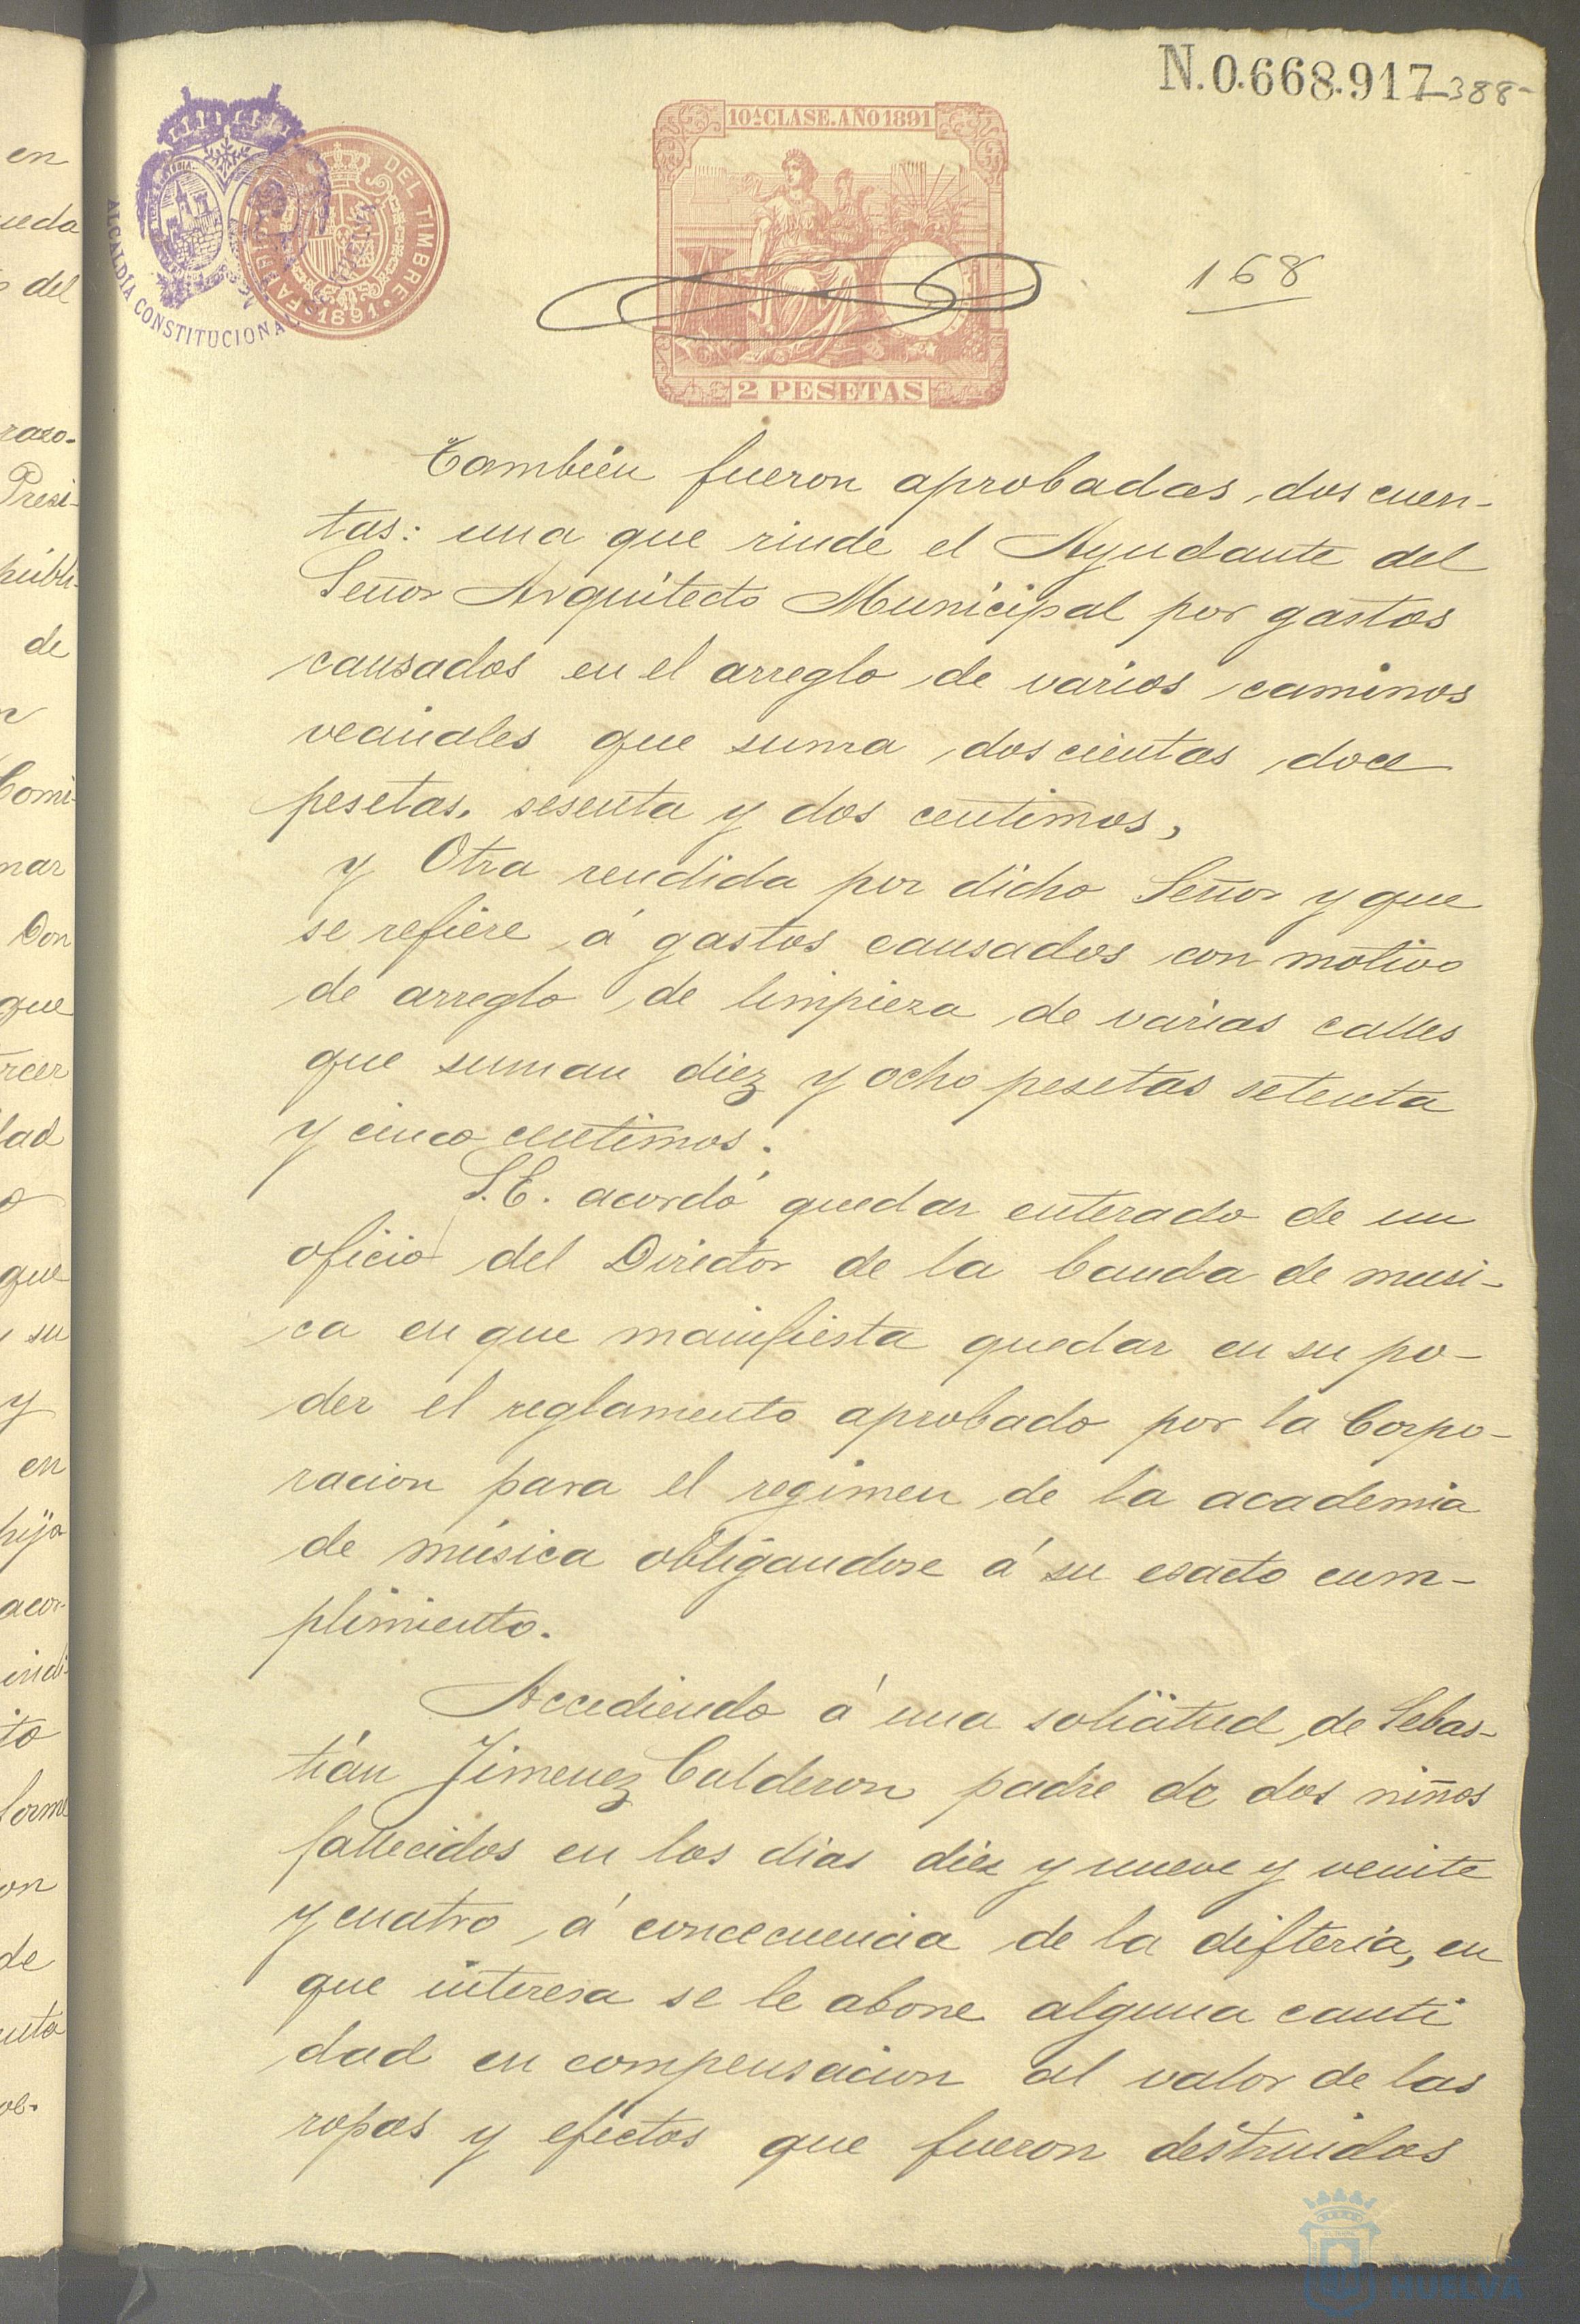 N.0.668.917 388-
10ª CLASE. AÑO 1891
DEL TIMBRE
1891
ALCALDÍA CONSTITUCIONAL
168
2 PESETAS
Tambien fueron aprobadas dos cuen-
tas: una que rinde el Ayudante del
Señor Arquitecto Municipal por gastos
causados en el arreglo de varios caminos
vecinales que suma doscientas doce
pesetas, sesenta y dos centimos,
y Otra rendida por dicho Señor y que
se refiere á gastos causados con motivo
de arreglo de limpieza de varias calles
que suman diez y ocho pesetas setenta
y cinco centimos.
S.E. acordó quedar enterado de un
oficio del Director de la banda de musi-
ca en que manifiesta quedar en su po-
der el reglamento aprobado por la Corpo-
racion para el regimen de la academia
de música obligandose á su esacto cum-
plimiento.
Accediendo á una solicitud de Sebas-
tián Jimenez Calderon padre de dos niños
fallecidos en los dias diez y nueve y veinte
y cuatro á concecuencia de la difteria, en
que interesa se le abone alguna canti
dad en compensacion al valor de las
ropas y efectos que fueron destruidos
HUELVA
en
ueda
del
razo-
Presi-
públi-
de
Comi-
nar
Don
que
rcer
dad
que
su
y
en
hija
acor-
indi-
to
forme
on
de
uta